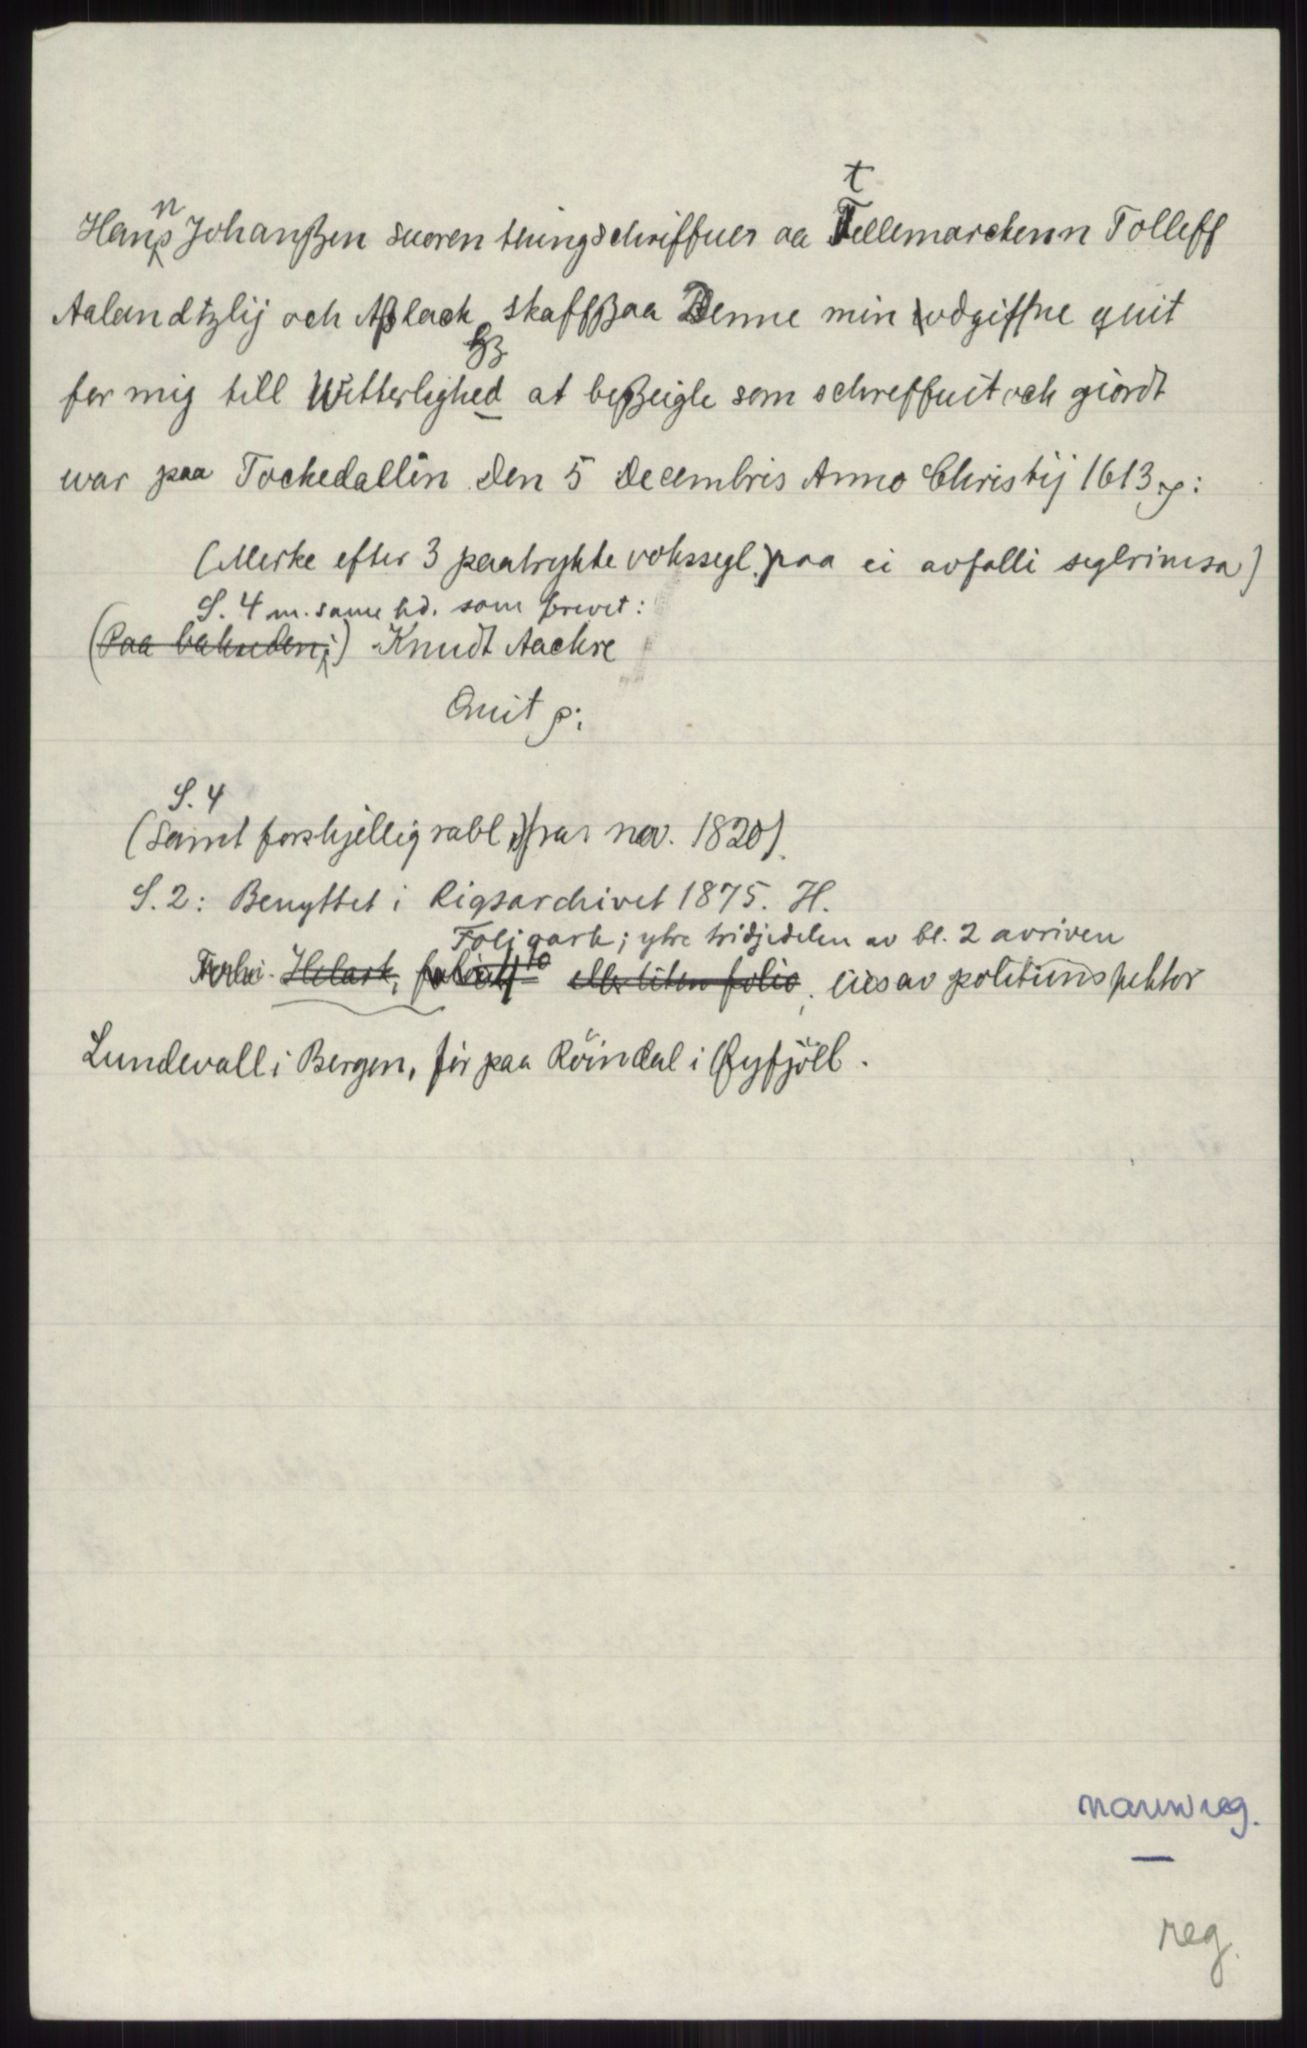 t
Hanns Johanßen suoren thingschriffuer aa Tellemarckenn Tolleff
Aalandtzlij och Aßlack skaffßaa Denne min vdgiffne quit
for mig till Witterlighed at beßeigle som schreffuit och giordt
war paa Tockedallen Den 5 Decembris Anno Christij 1613 p:
(Merke efter 3 paatrykte vokssegl, paa ei avfalli seglrimsa)
S. 4 m. same hd. som brevet:
(Paa baksiden:) Knudt Aackre
Quit p:
S. 4
(Samt forskjellig rabl, fraa nov. 1820).
S. 2: Benyttet i Rigsarchivet 1875. H.
Folioark; ytre tridjedelen av bl. 2 avriven
Helark, eller liten folio; av politiinspektør
Lundevall i Bergen, før paa Röindal i Øyfjöll.
namnreg.
reg.